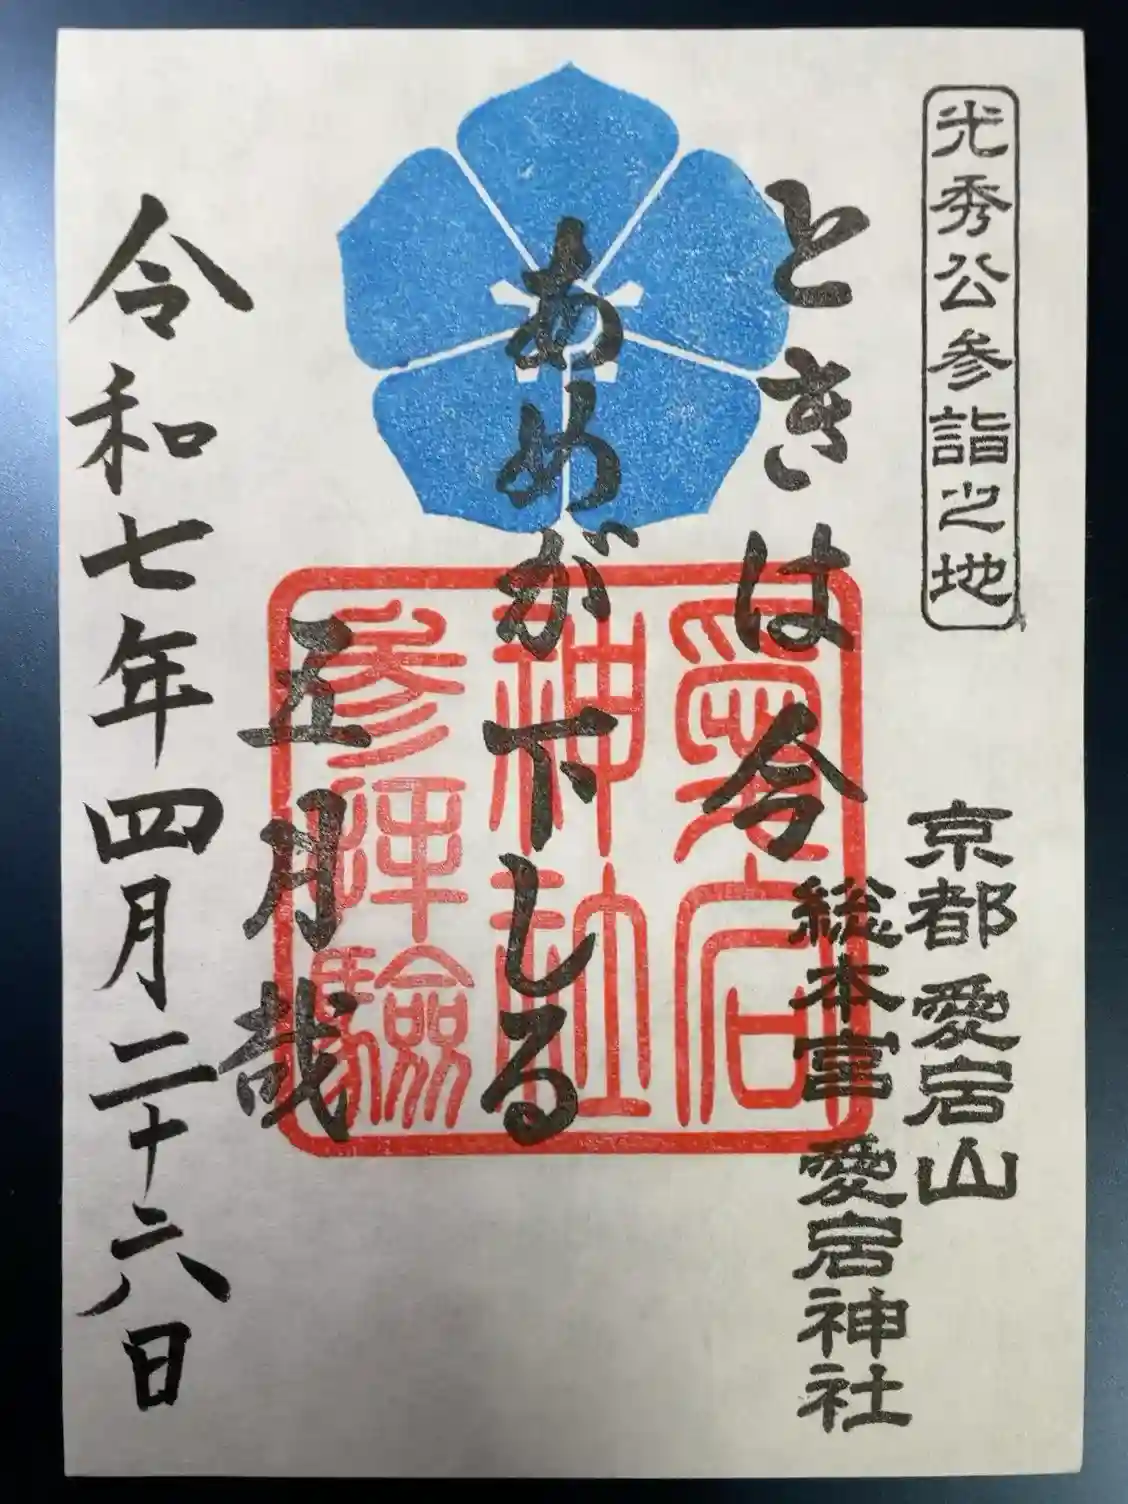 光秀公参詣之地
京都 愛宕山
総本宮 愛宕神社
ときは今
あめが下しる
五月哉
愛宕
神社
参拝験
令和七年四月二十六日